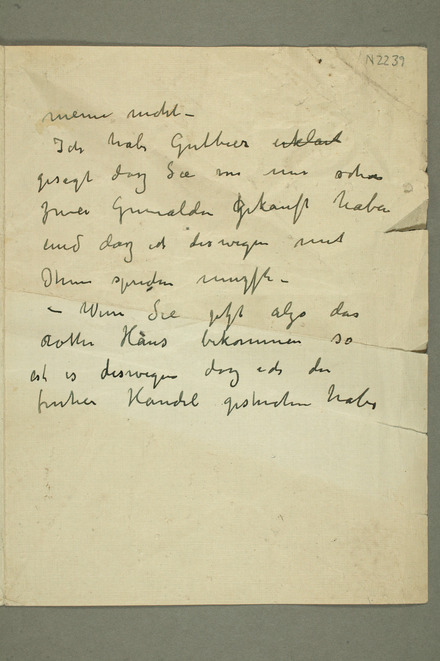 N2239
meine nicht –
Ich habe Gutbier erklärt
gesagt daß Sie von mir schon
zwei Gemälde Gekauft haben
und daß ich deswegen mit
Ihnen sprechen mußte –
– Wenn Sie jetzt also das
rotte Haus bekommen so
ist es deswegen daß ich den
Handel habe